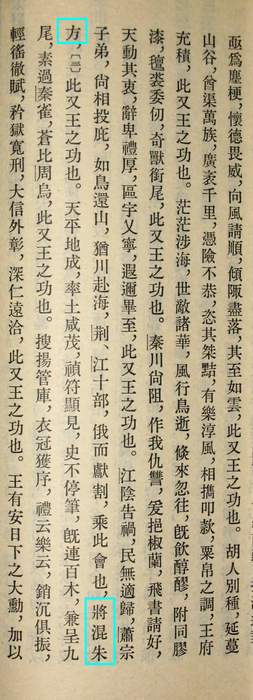 亟爲塵梗，懷德畏威，向風請順，傾陬盡落，其至如雲，此又王之功也。胡人別種，延蔓
山谷，酋渠萬族，廣袤千里，憑險不恭，恣其桀黠，有樂淳風，相攜叩款，粟帛之調，王府
充積，此又王之功也。茫茫涉海，世敵諸華，風行鳥逝，倏來忽往，旣飲醇醪，附同膠
漆，氊裘委仞，奇獸銜尾，此又王之功也。秦川尙阻，作我仇讐，爰挹椒蘭，飛書請好，
天動其衷，辭卑禮厚，區宇乂寧，遐邇畢至，此又王之功也。江陰告禍，民無適歸，蕭宗
子弟，尙相投庇，如鳥還山，猶川赴海，荆、江十部，俄而獻割，乘此會也，將混朱
方，〔三〕此又王之功也。天平地成，率土咸茂，禎符顯見，史不停筆，旣連百木，兼呈九
尾，素過秦雀，蒼比周烏，此又王之功也。搜揚管庫，衣冠獲序，禮云樂云，銷沉俱振，
輕徭徹賦，矜獄寬刑，大信外彰，深仁遠洽，此又王之功也。王有安日下之大勳，加以